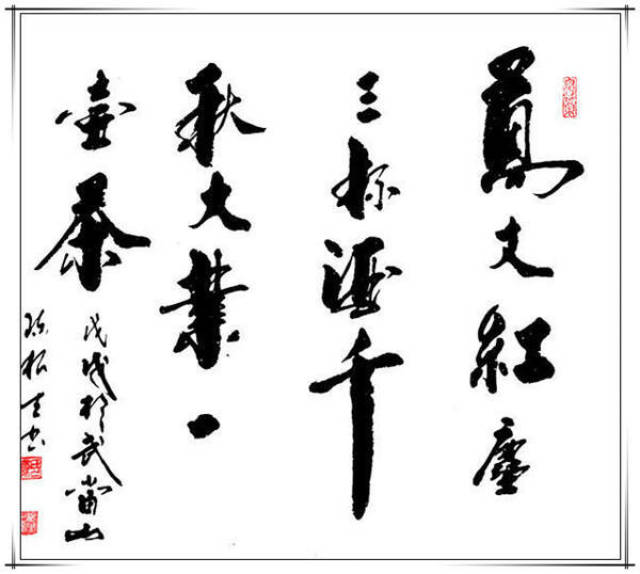 萬丈紅塵
三杯酒千
秋大業一
壺茶
戊戌於武當山